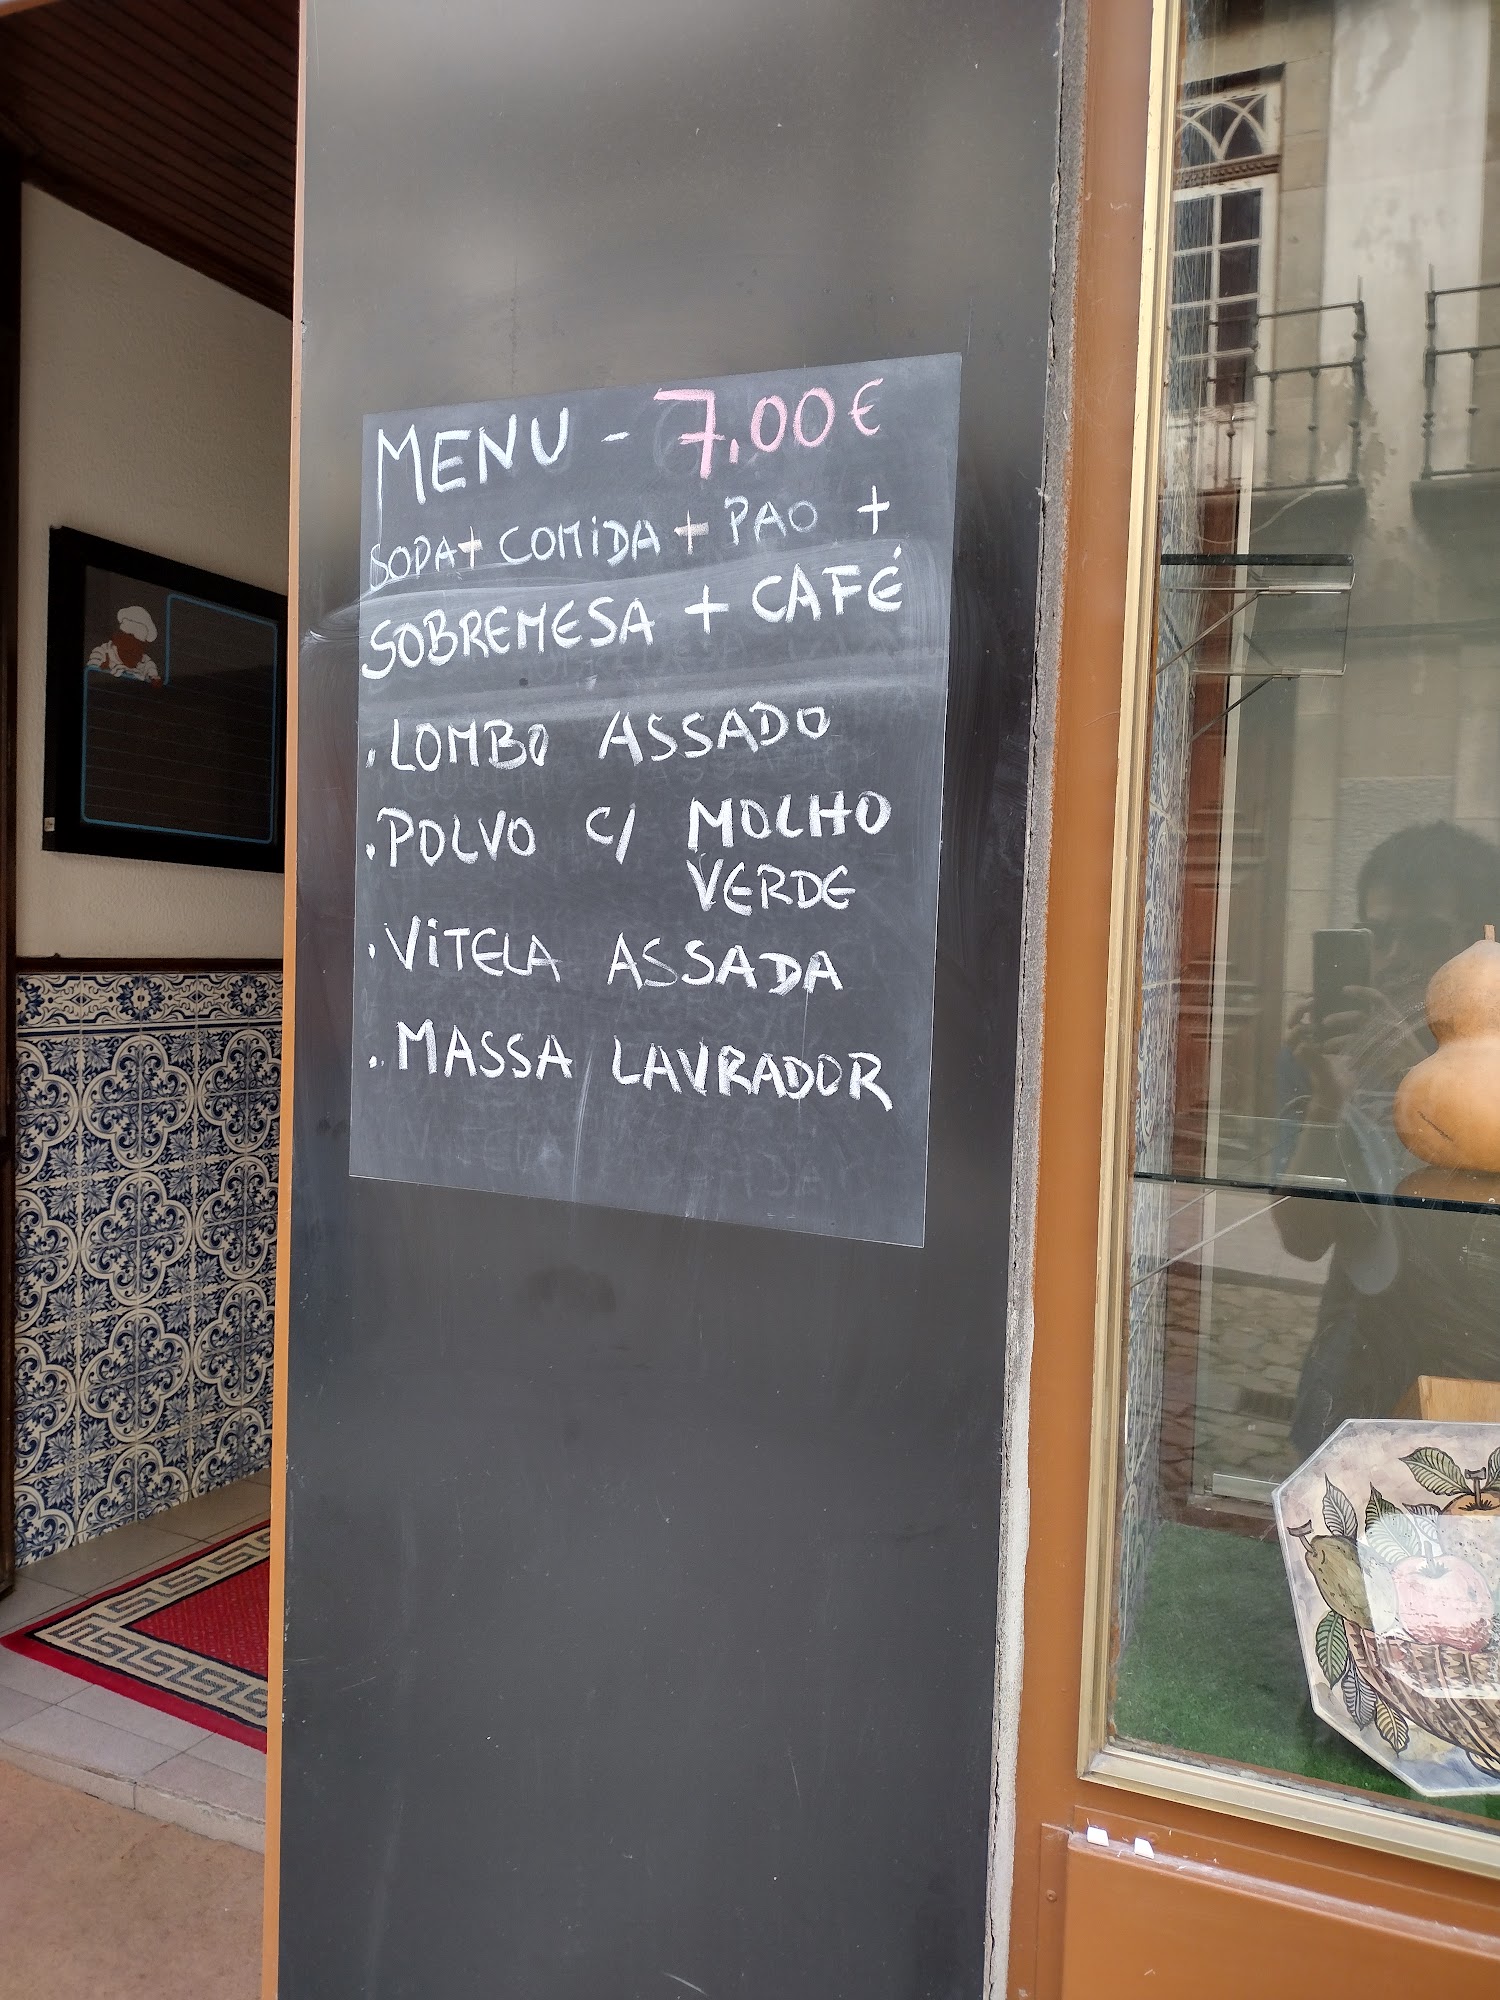 MENU - 7.00€
SOPA + COMIDA + PAO +
SOBREMESA + CAFÉ
. LOMBO ASSADO
. POLVO C/ MOLHO
VERDE
. VITELA ASSADA
. MASSA LAVRADOR